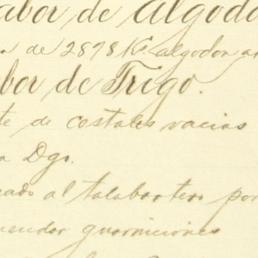 abor de Algodo
de 2878 Ks algodon a
bor de Trigo.
te de costales vacias
a Dgo.
eado al talabartero por
mendar guarniciones